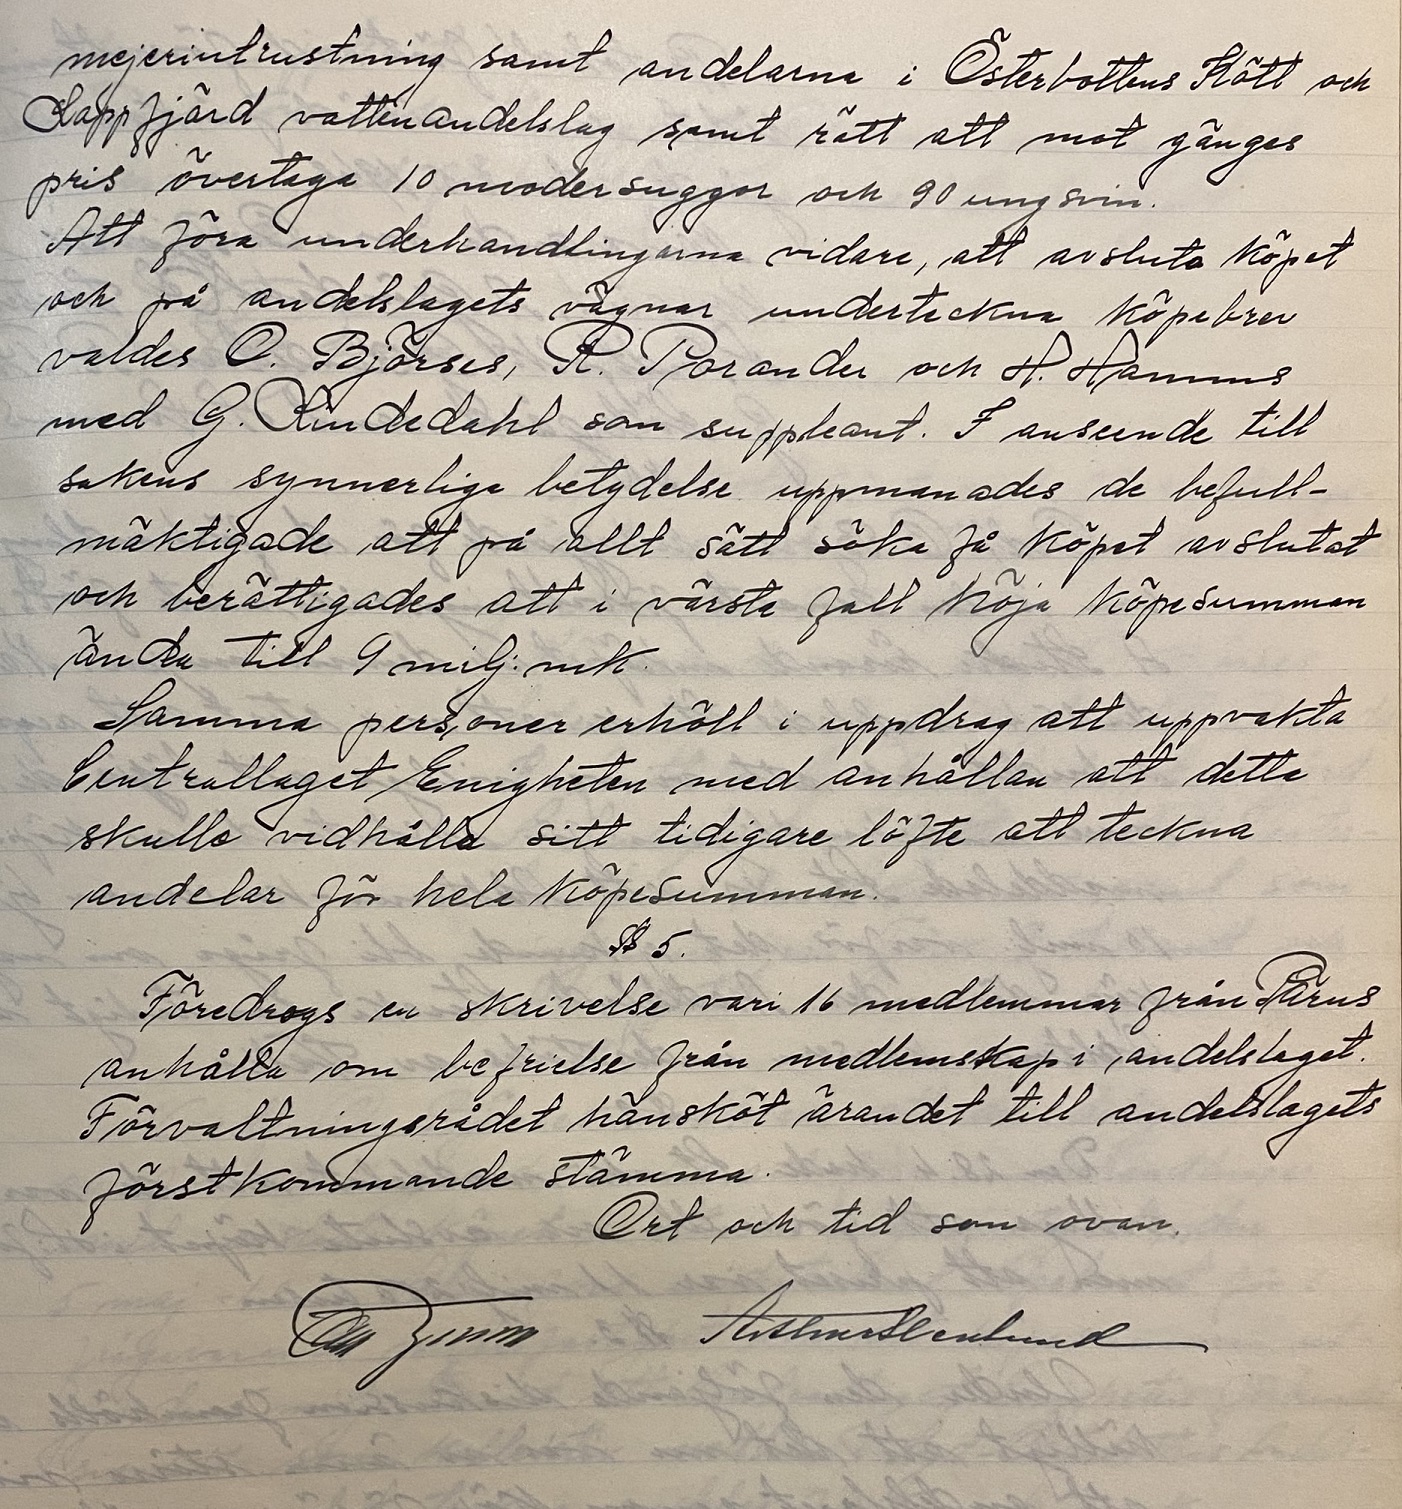 mejeriutrustning samt andelarna i Österbottens Kött och
Lappfjärd vattenandelslag samt rätt att mot gänges
pris övertaga 10 modersuggor och 90 ungsvin.
Att föra underhandlingarna vidare, att avsluta köpet
och på andelslagets vägnar underteckna köpebrev
valdes O. Björses, R. Porander och H. Hannus
med G. Lindedahl som suppleant. I anseende till
sakens synnerliga betydelse uppmanades de befull-
mäktigade att på allt sätt söka få köpet avslutat
och berättigades att i värsta fall höja köpesumman
ända till 9 milj. mk.
Samma personer erhöll i uppdrag att uppvakta
Centrallaget Enigheten med anhållan att detta
skulle vidhålla sitt tidigare löfte att teckna
andelar för hela köpesumman.
§ 5.
Föredrogs en skrivelse vari 16 medlemmar från Pärus
anhålla om befrielse från medlemskap i andelslaget.
Förvaltningsrådet hänsköt ärandet till andelslagets
förstkommande stämma.
Ort och tid som ovan.